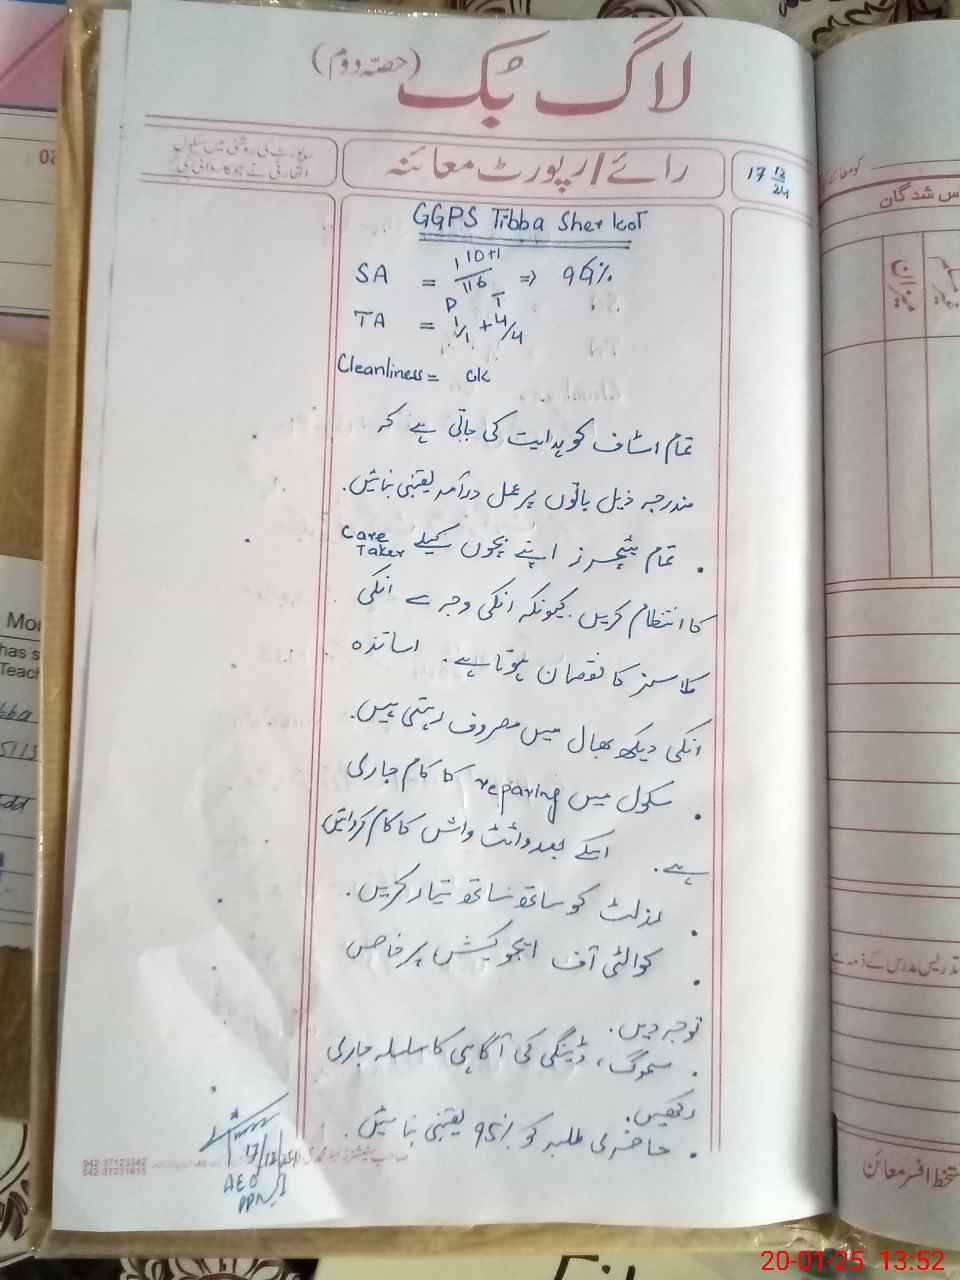 لاگ بُک (حصہ دوم)
رائے/رپورٹ معائنہ
رپورٹ کی روشنی میں سکول
اتھارٹی نے جو کاروائی کی
17 12/24
GGPS Tibba Sher Kot
SA = 110+1/116 => 96%
P T
TA = 1/1 + 4/4
Cleanliness = ok
تمام اسٹاف کو ہدایت کی جاتی ہے کہ
مندرجہ ذیل باتوں پر عمل درآمد یقینی بنائیں.
• تمام ٹیچرز اپنے بچوں کیلئے Care Taker
کا انتظام کریں. کیونکہ انکی وجہ سے انکی
کلاسز کا نقصان ہوتا ہے. اساتذہ
انکی دیکھ بھال میں مصروف رہتی ہیں.
• سکول میں reparing کا کام جاری
ہے. اسکے بعد وائٹ واش کا کام کروائیں
• رزلٹ کو ساتھ ساتھ تیار کریں.
• کوالٹی آف ایجوکیشن پر خاص
توجہ دیں.
• سموگ، ڈینگی کی آگاہی کا سلسلہ جاری
رکھیں.
• حاضری طلبہ کو 95% یقینی بنائیں.
17/12/24
AEO
042-37123342
042-37231815
س شدگان
تدریس مدرس کے ذمہ
دستخط افسر معائن
has s
Teach
20-01-25 13:52